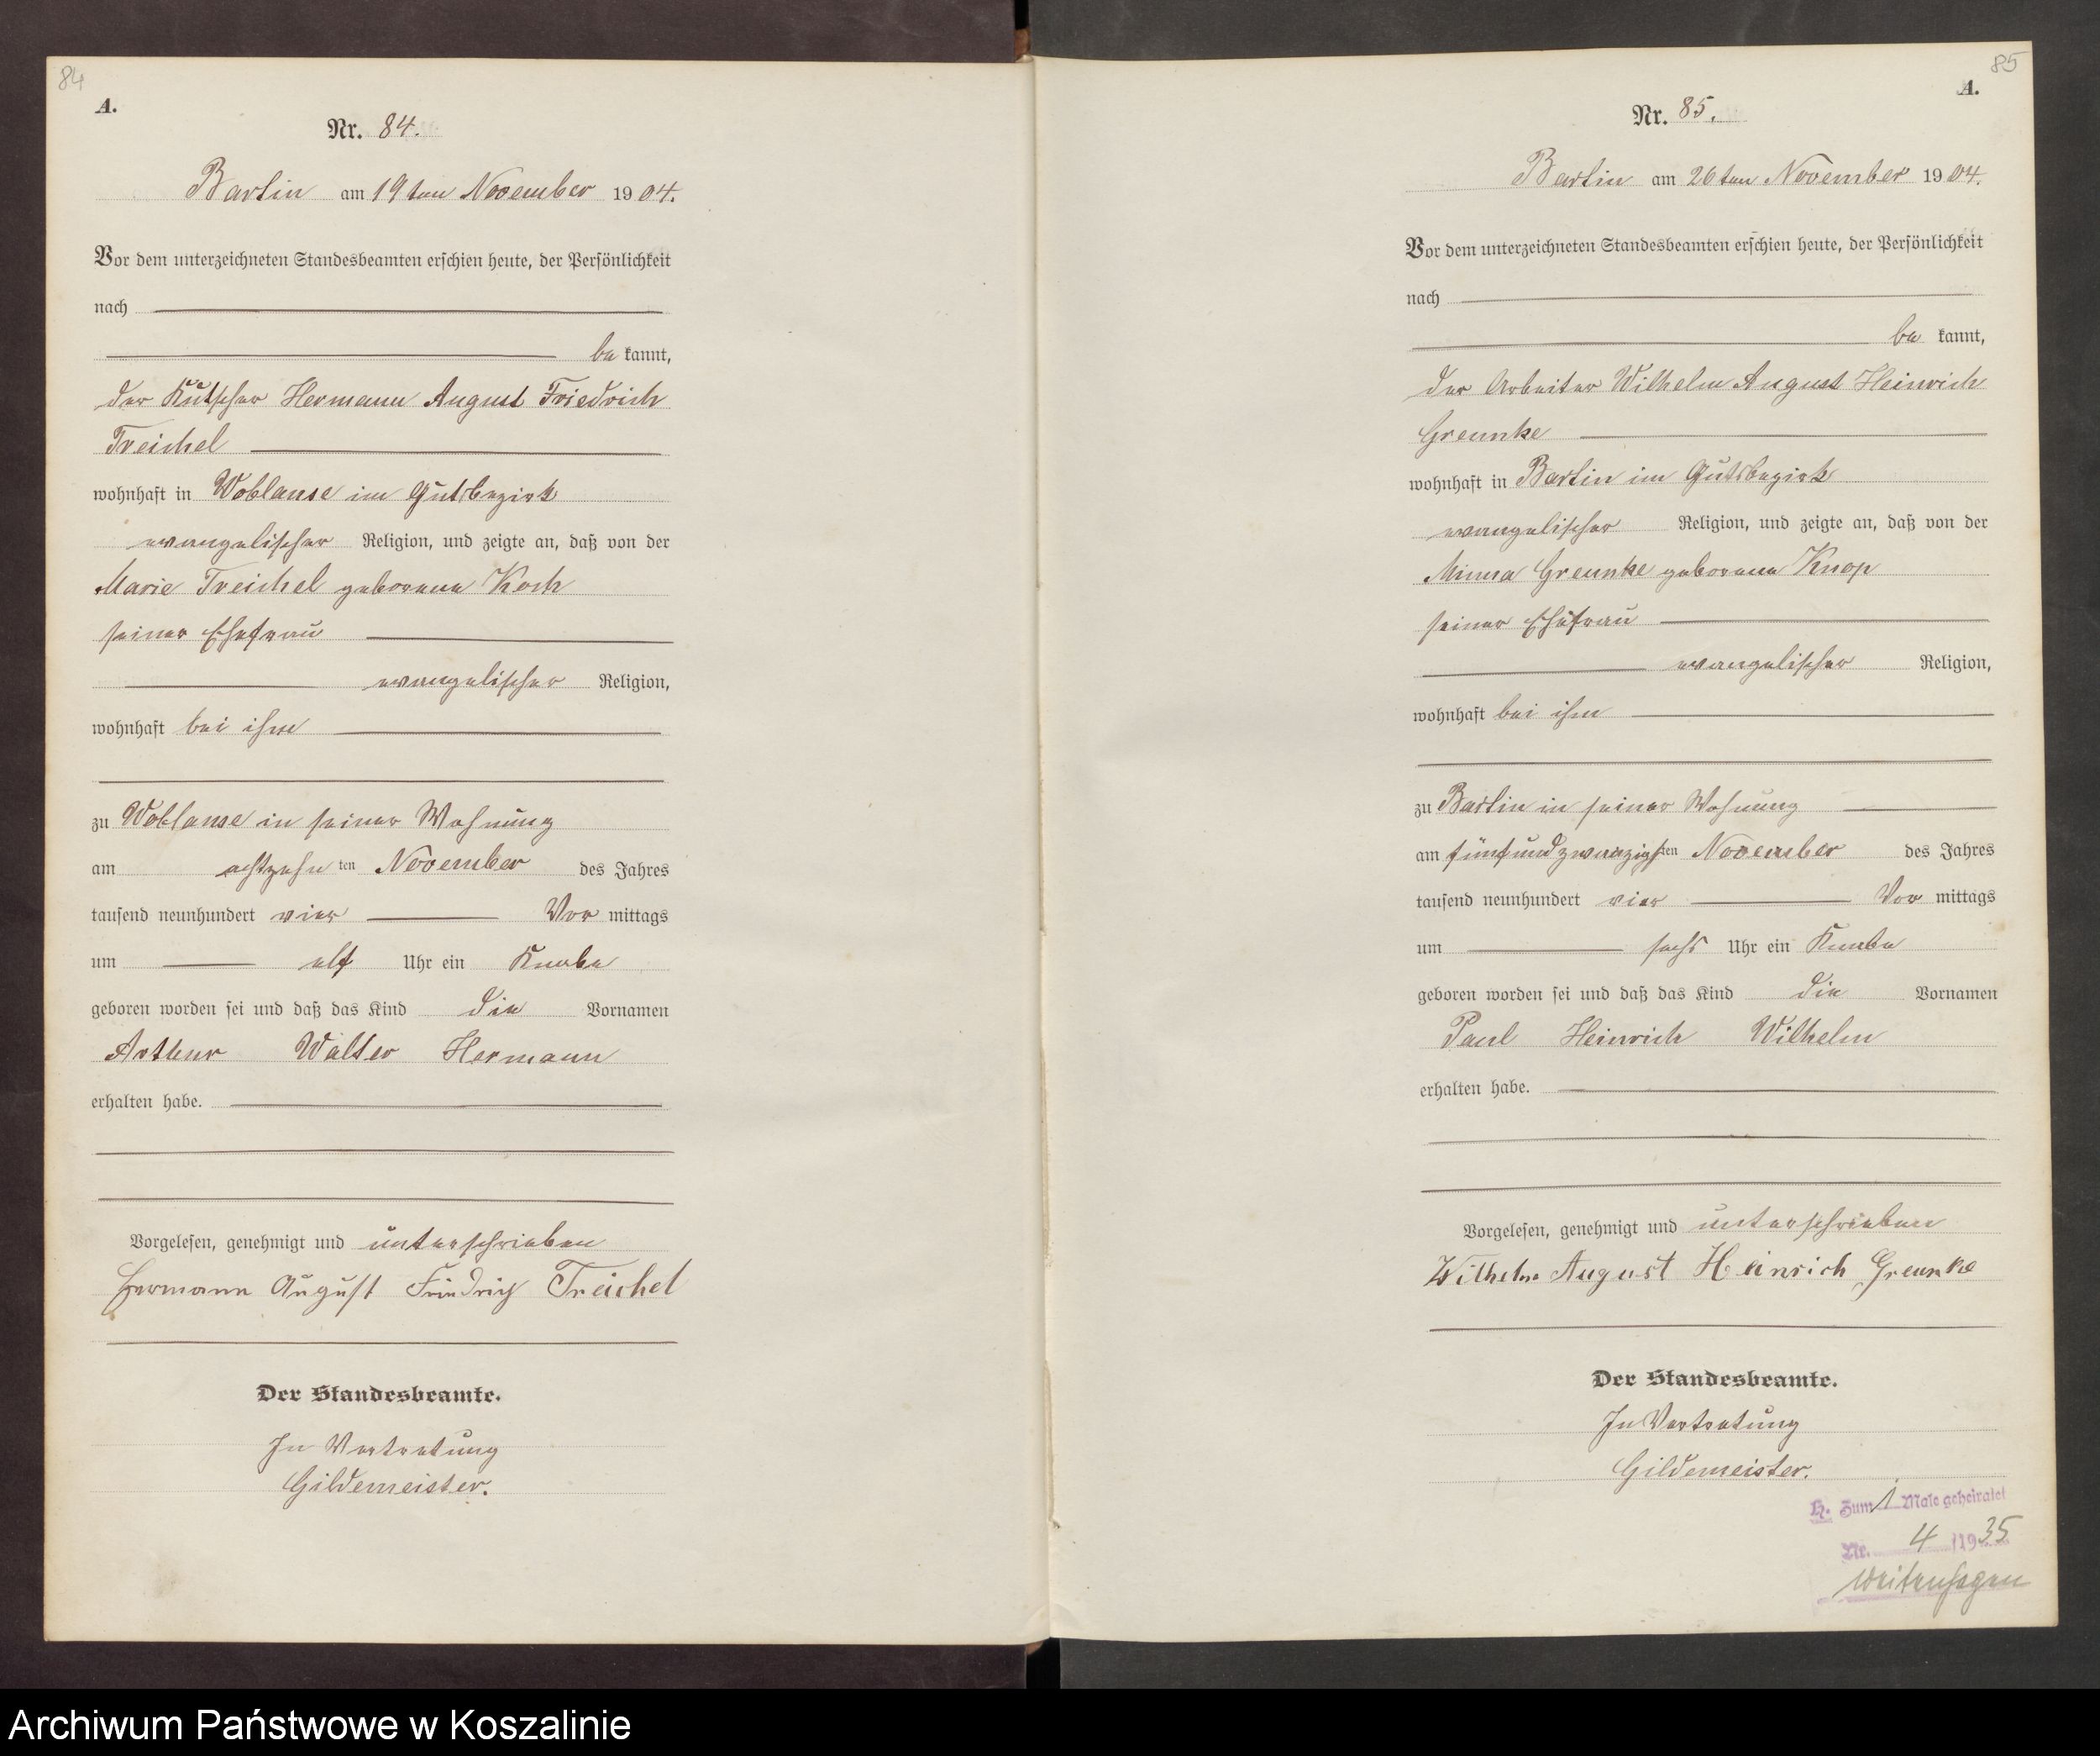 84
A.
Nr. 84.
Bartin am 19ten November 1904.
Vor dem unterzeichneten Standesbeamten erschien heute, der Persönlichkeit
nach
be kannt,
der Kutscher Hermann August Friedrich
Treichel
wohnhaft in Woblanse im Gutsbezirk
evangelischer Religion, und zeigte an, daß von der
Marie Treichel geborene Koch
seiner Ehefrau
evangelischer Religion,
wohnhaft bei ihm
zu Woblanse in seiner Wohnung
am achtzehn ten November des Jahres
tausend neunhundert vier Vor mittags
um elf Uhr ein Knabe
geboren worden sei und daß das Kind die Vornamen
Arthur Walter Hermann
erhalten habe.
Vorgelesen, genehmigt und unterschrieben
Hermann August Friedrich Treichel
Der Standesbeamte.
In Vertretung
Gildemeister.
85
A.
Nr. 85.
Bartin am 26ten November 1904.
Vor dem unterzeichneten Standesbeamten erschien heute, der Persönlichkeit
nach
be kannt,
der Arbeiter Wilhelm August Heinrich
Greunke
wohnhaft in Bartin im Gutsbezirk
evangelischer Religion, und zeigte an, daß von der
Minna Greunke geborene Knop
seiner Ehefrau
evangelischer Religion,
wohnhaft bei ihm
zu Bartin in seiner Wohnung
am fünfundzwanzigsten November des Jahres
tausend neunhundert vier Vor mittags
um sechs Uhr ein Knabe
geboren worden sei und daß das Kind die Vornamen
Paul Heinrich Wilhelm
erhalten habe.
Vorgelesen, genehmigt und unterschrieben
Wilhelm August Heinrich Greunke
Der Standesbeamte.
In Vertretung
Gildemeister.
H. Zum 1 Male geheiratet
Nr. 4 /1935
Weitenhagen
Archiwum Państwowe w Koszalinie